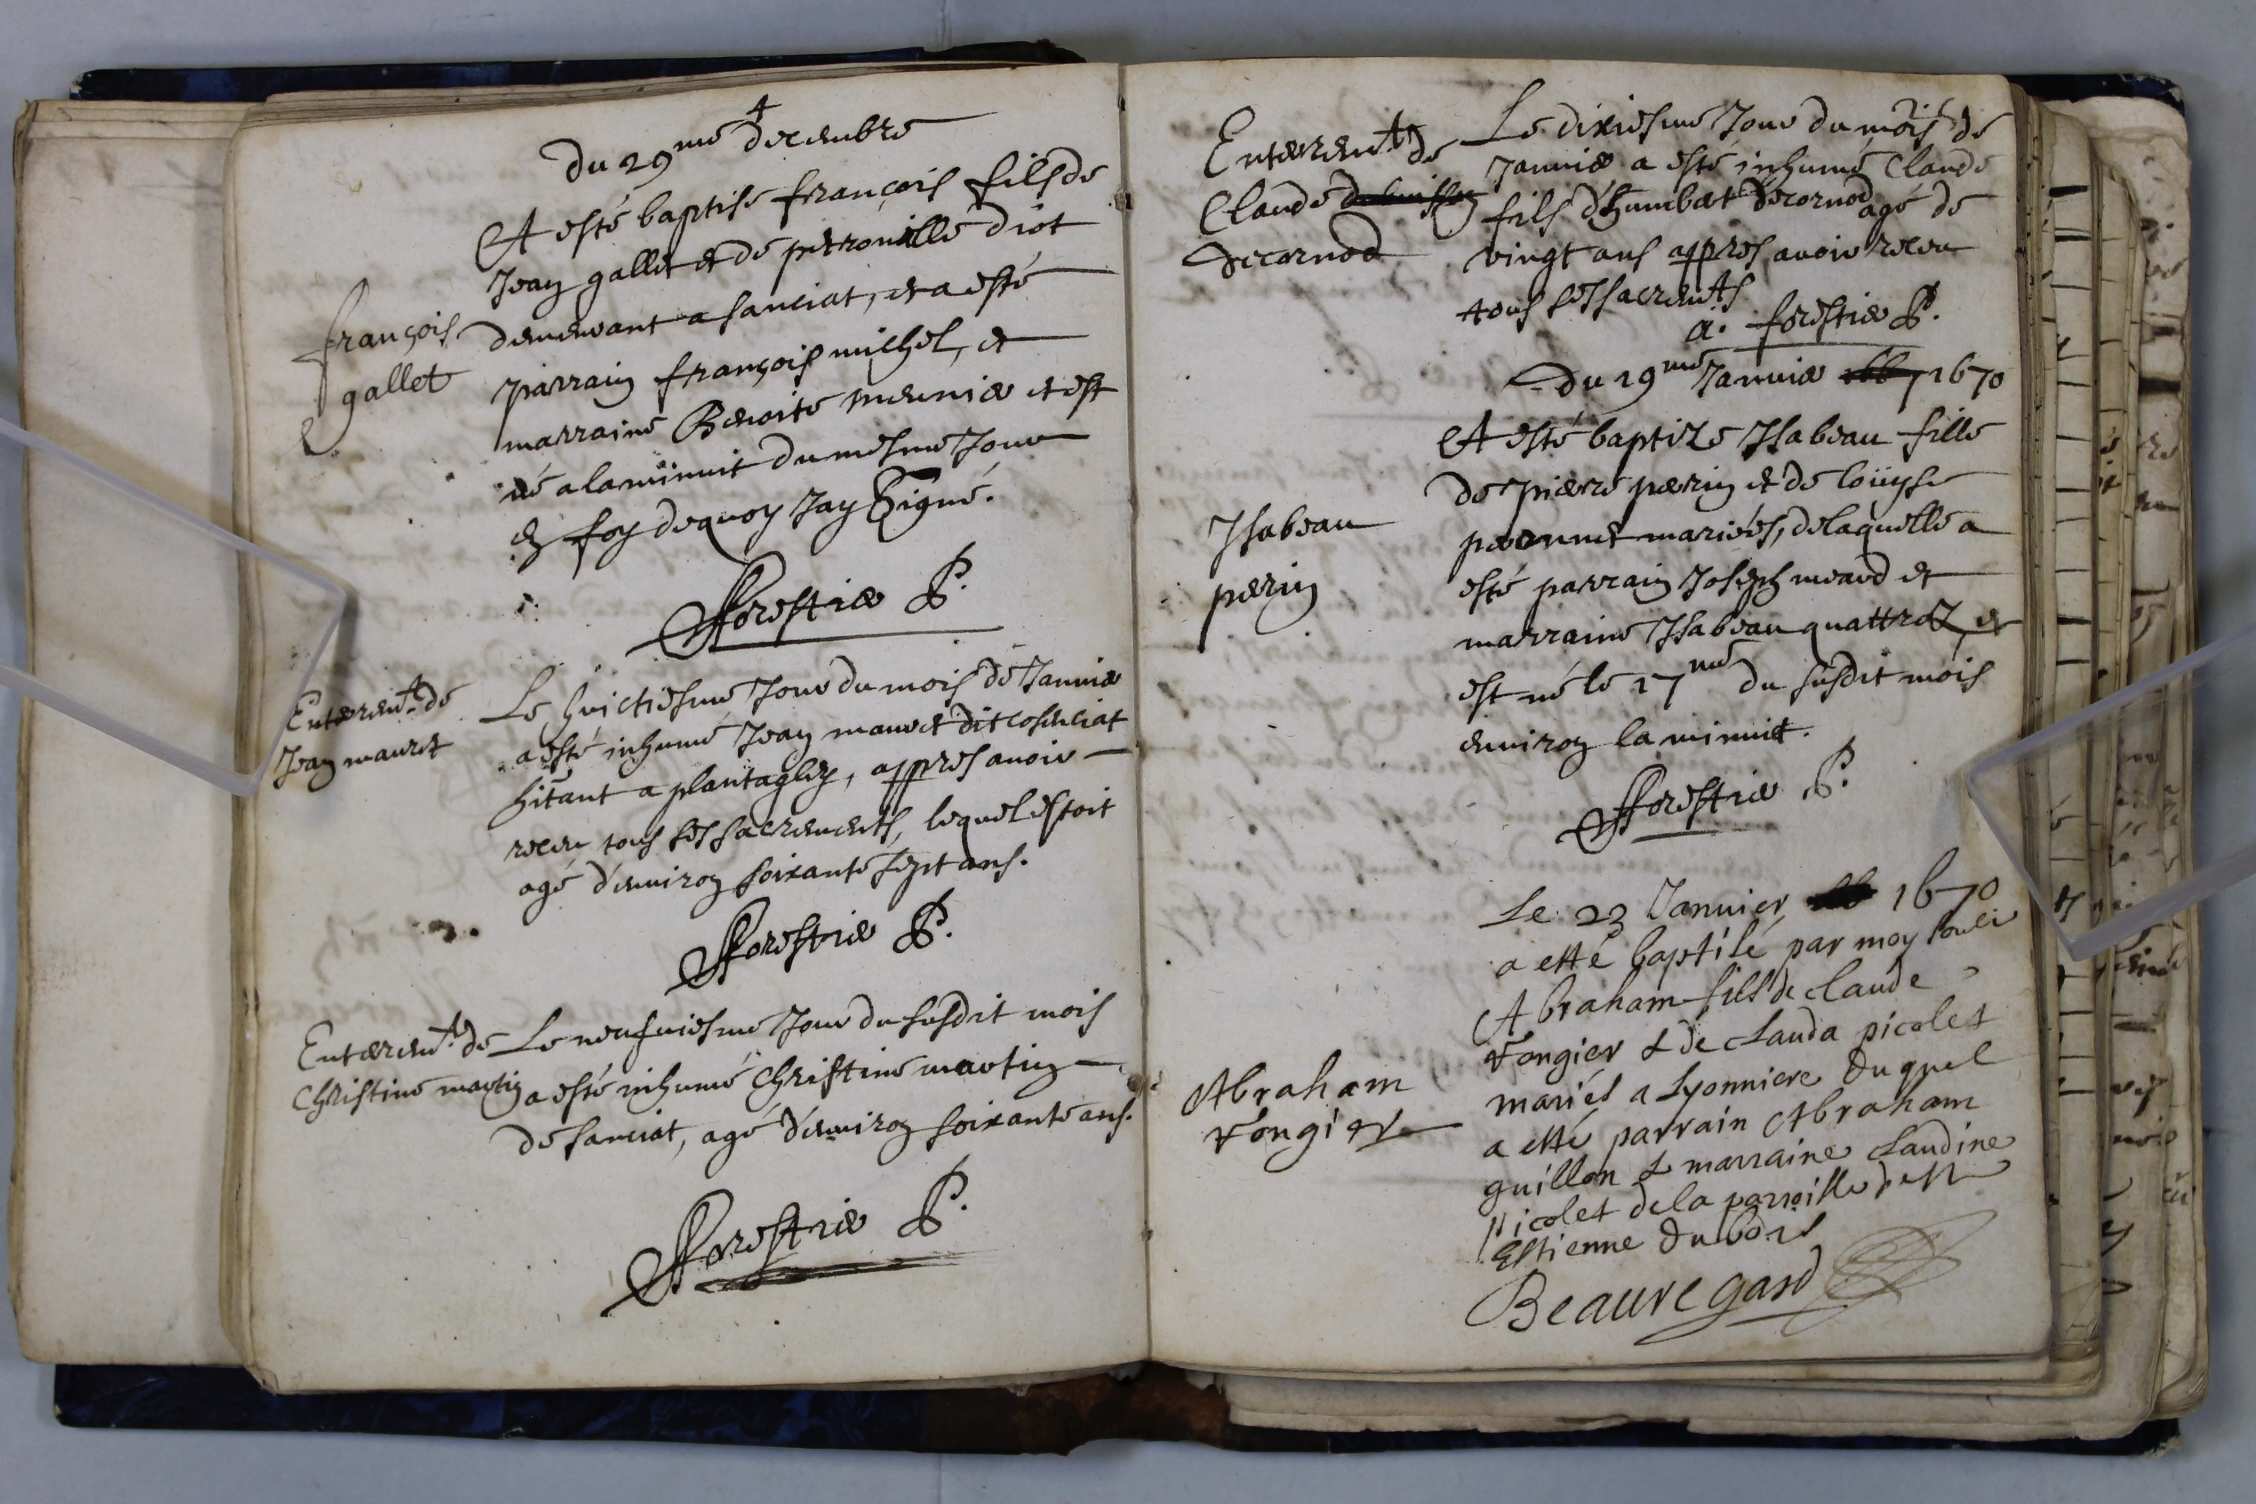 du 29me decembre
A esté baptise françois fils de
Jean gallet et de petronille diot
demeurant a sanciat, et a esté
françois
gallet
parrain françois michel, et
marraine Benoite meunier et est
né a la minuit du mesme Jour
en foy dequoy Jay signé.
Forestier P.
Enteremt. de
Jean mauret
Le huictiesme Jour du mois de Januier
a esté inhumé Jean mauret dit
hitant a plantaglay, appres auoir
receu tous ses sacrements, lequel estoit
agé d'enuiron soixante sept ans.
Forestier P.
Enteremt. de
Christine martin
Le neufuiesme Jour du susdit mois
a esté inhumé Christine martin
de sanciat, agé d'enuiron soixante ans.
Forestier P.
Enteremt. de
Claude
decornod
Le dixiesme Jour du mois de
Januier a esté inhumé Claude
fils d'humbert decornod agé de
vingt ans appres auoir receu
tous ses sacremts
a. forestier P.
du 19me Januier 1670
A esté baptize Isabeau fille
de pierre perrin et de louyse
peronnet mariés, delaquelle a
Isabeau
perrin
esté parrain Joseph meard et
marraine Isabeau quattrez, et
est né le 17me du susdit mois
enuiron la minuit.
Forestier P.
Le 23 Januier 1670
a etté baptisé par moy
Abraham fils de claude
vongier & de clauda picolet
mariés a Lyonniere duquel
Abraham
vongier
a etté parrain Abraham
guillon & marraine claudine
picolet de la parroisse de st
Estienne du bois
Beauregard